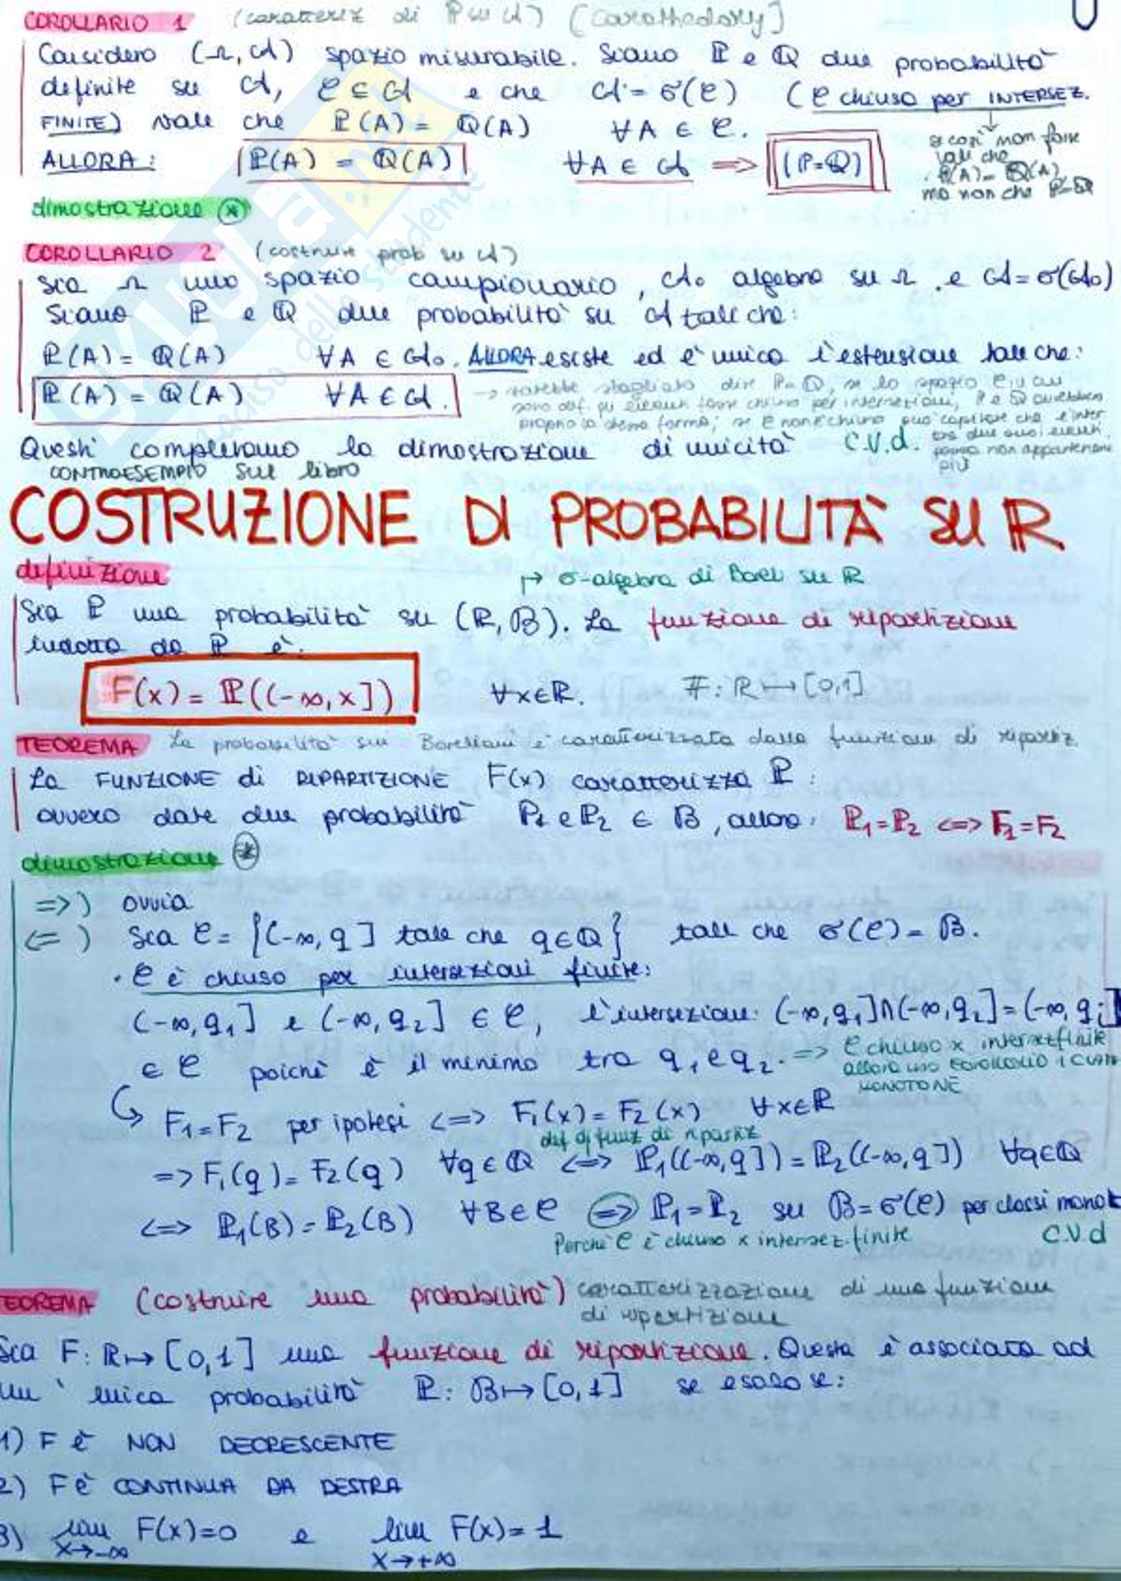 COROLLARIO 1 (caratteriz di P su A) [Carathedory]
Considero (Ω, A) spazio misurabile. Siano P e Q due probabilità
definite su A, C ⊆ A e che A = σ(C) (C chiuso per INTERSEZ.
FINITE) vale che P(A) = Q(A) ∀A ∈ C.
ALLORA: P(A) = Q(A) ∀A ∈ A => (P=Q)
se così non fosse
vale che
P(A) = Q(A)
ma non che P=Q
dimostrazione *
COROLLARIO 2 (costruire prob su A)
Sia Ω uno spazio campionario, A₀ algebra su Ω e A = σ(A₀)
Siano P e Q due probabilità su A tali che:
P(A) = Q(A) ∀A ∈ A₀. ALLORA esiste ed è unica l'estensione tale che:
P(A) = Q(A) ∀A ∈ A.
→ sarebbe sbagliato dire P=Q, se lo spazio C su cui
sono def. gli elementi fosse chiuso per intersezioni, P e Q avrebbero
proprio la stessa forma; se C non è chiuso può capitare che l'inter
tra due suoi elementi possa non appartenere
più
Questi completano la dimostrazione di unicità C.V.d.
CONTROESEMPIO sul libro
COSTRUZIONE DI PROBABILITÀ SU R
definizione
↦ σ-algebra di Borel su R
Sia P una probabilità su (R, B). La funzione di ripartizione
indotta da P è:
F(x) = P((-∞, x]) ∀x∈R. F: R ↦ [0,1]
TEOREMA La probabilità sui Boreliani è caratterizzata dalla funzione di ripartiz.
La FUNZIONE di RIPARTIZIONE F(x) caratterizza P:
ovvero date due probabilità P₁ e P₂ ∈ B, allora: P₁=P₂ <=> F₁=F₂
dimostrazione *
=>) ovvia
<=) Sia C = {(-∞, q] tale che q∈Q} tale che σ(C) = B.
· C è chiuso per intersezioni finite:
(-∞, q₁] e (-∞, q₂] ∈ C, l'intersezione: (-∞, q₁]∩(-∞, q₂] = (-∞, qᵢ]
∈ C poichè è il minimo tra q₁ e q₂. => C chiuso x interset finite
allora uso COROLLARIO 1 CLASSI
MONOTONE
F₁=F₂ per ipotesi <=> F₁(x) = F₂(x) ∀x∈R
def di funz di ripartiz
=> F₁(q) = F₂(q) ∀q∈Q <=> P₁((-∞,q]) = P₂((-∞,q]) ∀q∈Q
<=> P₁(B) = P₂(B) ∀B∈C => P₁=P₂ su B=σ(C) per classi monot
Perchè C è chiuso x intersez. finite C.V.d
TEOREMA (costruire una probabilità) caratterizzazione di una funzione
di ripartizione
Sia F: R ↦ [0,1] una funzione di ripartizione. Questa è associata ad
un'unica probabilità P: B ↦ [0,1] se e solo se:
1) F è NON DECRESCENTE
2) F è CONTINUA DA DESTRA
3) lim F(x)=0 e lim F(x)=1
x→-∞ x→+∞